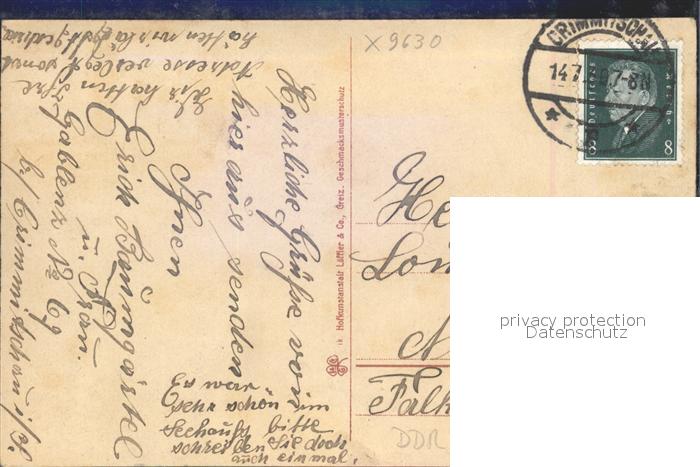 X 9630
CRIMMITSCHAU
14.7. 7-8N
Deutsches Reich
8 8
Herzliche Grüße von
hier aus senden
Ihnen
Erich Baumgärtel
u. Frau.
Gablenz № 69
b/ Crimmitschau i/S.
Wir hatten Ihre
Adresse verlegt sonst
hätten wir
Es war
sehr schön im
Seehaus bitte
schreiben Sie doch
auch einmal.
Hofkunstanstalt Löffler & Co., Greiz. Geschmacksmusterschutz
He
Lou
Falk
DDR
privacy protection
Datenschutz